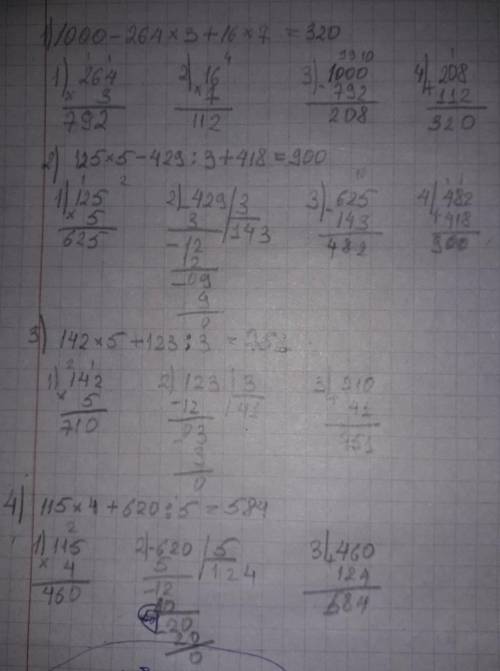 1) 1000 - 264 × 3 + 16 × 7 = 320
1) 264 2) 16 4 3) 1000 4) 208
× 3 × 7 - 792 + 112
792 112 208 320
2) 125 × 5 - 429 : 3 + 418 = 900
1) 125 2 2) 429 | 3 3) 625 4) 482
× 5 3 | 143 - 143 + 418
625 - 12 482 900
12
- 09
9
0
3) 142 × 5 + 123 : 3 =
1) 142 2) 123 | 3 3)
× 5 - 12 | 41 41
710 03
3
0
4) 115 × 4 + 620 : 5 = 584
1) 115 2) - 620 | 5 3) 460
× 4 5 | 124 124
460 - 12 584
10
- 20
20
0